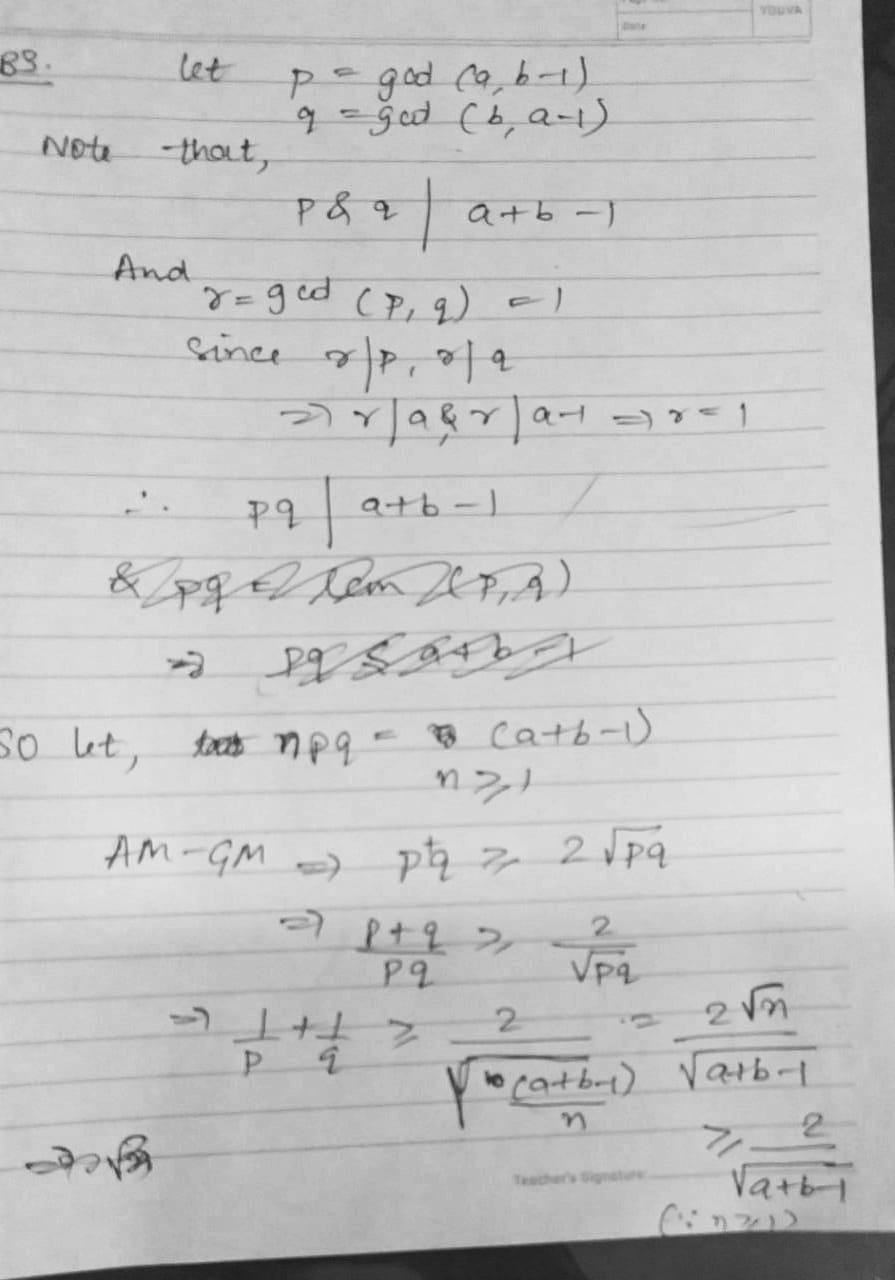 YOUVA
Date
B3. let p = gcd (a, b-1)
q = gcd (b, a-1)
Note that,
p & q | a+b-1
And
r = gcd (p, q) = 1
Since r|p, r|q
=> r|a & r|a-1 => r = 1
∴ pq | a+b-1
& pq = lcm (p, q)
=> pq ≤ a+b-1
SO let, npq = (a+b-1)
n ≥ 1
AM-GM => p+q ≥ 2√pq
=> p+q/pq ≥ 2/√pq
=> 1/p + 1/q ≥ 2/√((a+b-1)/n) = 2√n/√a+b-1
≥ 2/√a+b-1
Teacher's Signature
(∵ n≥1)